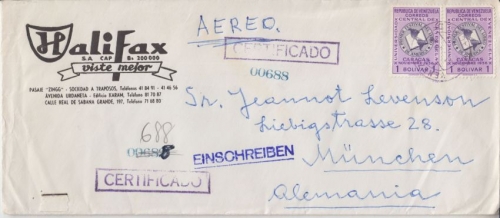 Halifax
S.A. CAP Bs 300 000
viste mejor
PASAJE "ZINGG" - SOCIEDAD A TRAPOSOS, Teléfonos 41 84 91 - 41 46 56
AVENIDA URDANETA - Edificio KARAM, Teléfono 81 70 87
CALLE REAL DE SABANA GRANDE, 197, Teléfono 71 68 80
AEREO.
CERTIFICADO
00688
REPUBLICA DE VENEZUELA
CORREOS
CARACAS
1 BOLIVAR 1
REPUBLICA DE VENEZUELA
CORREOS
CARACAS
1 BOLIVAR 1
Sr. Jeannot Levenson
Liebigstrasse 28.
München
Alemania
688
00688
EINSCHREIBEN
CERTIFICADO